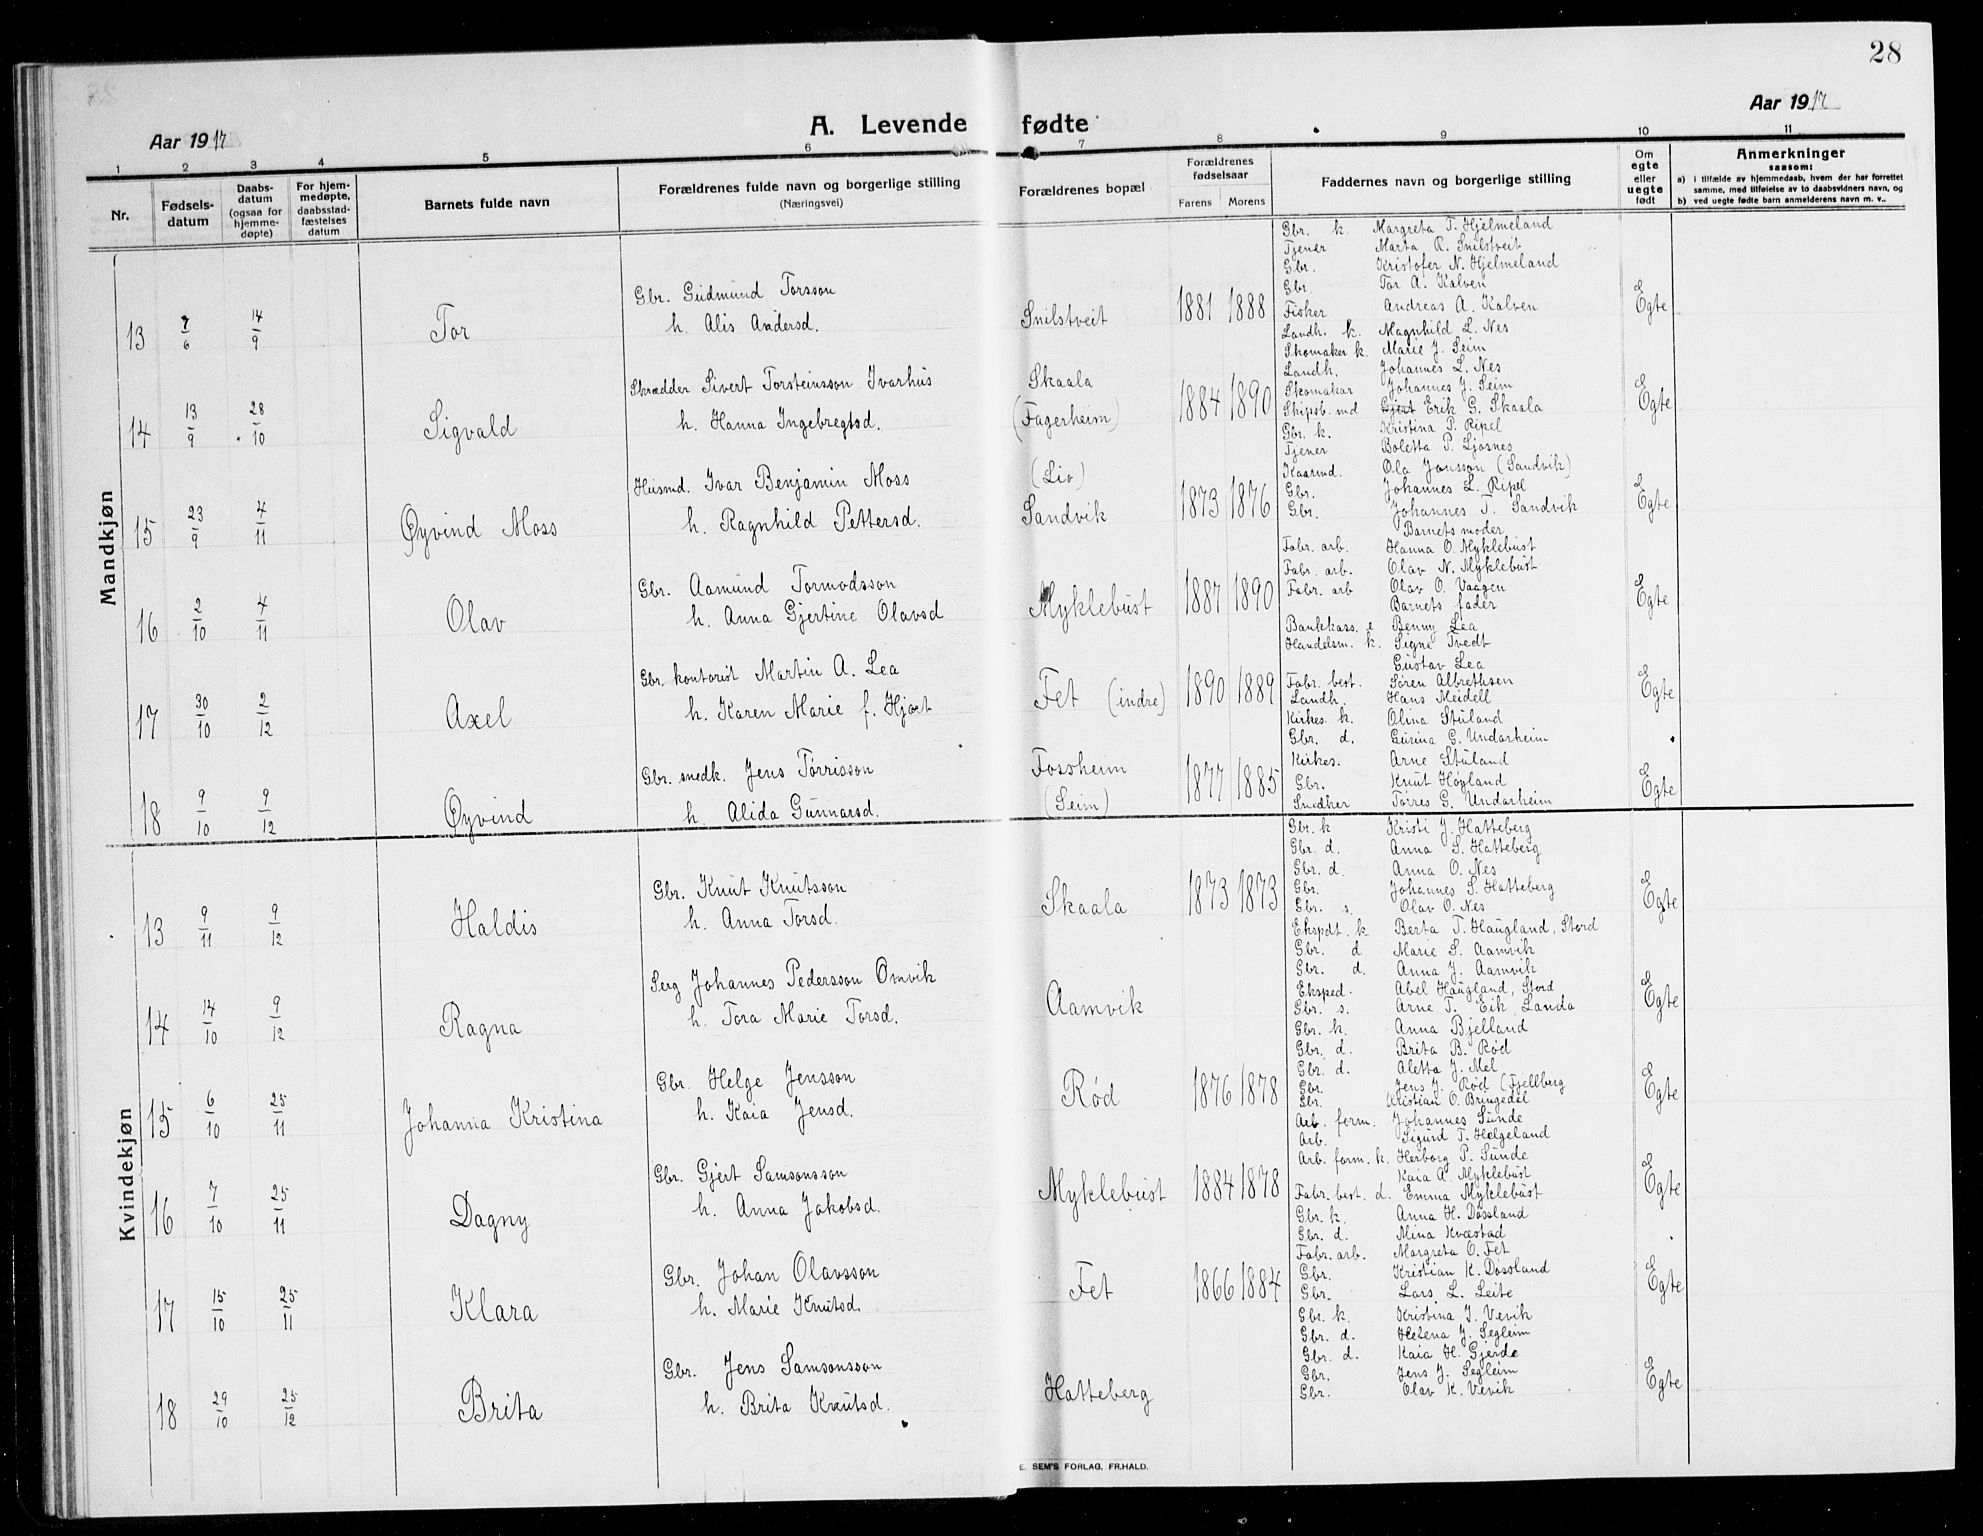 28
Aar 1917
A. Levende fødte
Aar 1917
1 2 3 4 5 6 7 8 9 10 11
Nr.
Fødsels-
datum
Daabs-
datum
(ogsaa for
hjemme-
døpte)
For hjem-
medøpte,
daabsstad-
fæstelses
datum
Barnets fulde navn
Forældrenes fulde navn og borgerlige stilling
(Næringsvei)
Forældrenes bopæl
Forældrenes
fødselsaar
Farens Morens
Faddernes navn og borgerlige stilling
Om
egte
eller
uegte
født
Anmerkninger
saasom:
a) i tilfælde av hjemmedaab, hvem der har forrettet
samme, med tilføielse av to daabsvidners navn, og
b) ved uegte fødte barn anmelderens navn m. v..
Mandkjøn
13 7/6 14/9 Tor
Gbr. Gudmund Torsson
h. Alis Andersd.
Snilstveit 1881 1888
Gbr. k. Margreta T. Hjelmeland
Tjener Marta R. Snilstveit
Gbr. Kristofer N. Hjelmeland
Gbr. Tor A. Kalven
Fisker Andreas A. Kalven
Egte
14 13/9 28/10 Sigvald
Skrædder Sivert Torsteinsson Ivarhus
h. Hanna Ingebregtsd.
Skaala
(Fagerheim)
1884 1890
Landh. k. Magnhild L. Nes
Skomaker k. Marie J. Seim
Landh. Johannes L. Nes
Skomakar Johannes J. Seim
Skipsb. md Gjert Erik G. Skaala
Egte
15 23/9 4/11 Øyvind Moss
Husmd. Ivar Benjamin Moss
h. Ragnhild Pettersd.
(Lio)
Sandvik
1873 1876
Gbr. k. Kristina P. Ripel
Tjener Boletta P. Ljosnes
Kaarmd. Ola Jonsson (Sandvik)
Gbr. Johannes L. Ripel
Gbr. Johannes T. Sandvik
Egte
16 2/10 4/11 Olav
Gbr. Aamund Tormodsson
h. Anna Gjertine Olavsd
Myklebust 1887 1890
Barnets moder
Fabr. arb. Hanna O. Myklebust
Fabr. arb. Olav N. Myklebust
Fabr. arb Olav O. Vaagen
Barnets fader
Egte
17 30/10 2/12 Axel
Gbr. kontorist Martin A. Lea
h. Karen Marie f. Hjort
Fet (indre) 1890 1889
Bankkass. e Benny Lea
Handelsm. k. Signe Tvedt
Gustav Lea
Fabr. best. Søren Albrethsen
Landh. Hans Meidell
Egte
18 9/10 9/12 Øyvind
Gbr. snedk. Jens Tørrisson
h. Alida Gunnarsd.
Fossheim
(Seim)
1877 1885
Kirkes. k. Olina Stuland
Gbr. d. Gurina G. Undarheim
Kirkes. Arne Stuland
Gbr. Knut Høyland
Snedker Tørres G. Undarheim
Egte
Kvindekjøn
13 9/11 9/12 Haldis
Gbr. Knut Knutsson
h. Anna Torsd.
Skaala 1873 1873
Gbr. k Kristi J. Hatteberg
Gbr. d. Anna S. Hatteberg
Gbr. d. Anna O. Nes
Gbr. Johannes S. Hatteberg
Gbr. s. Olav O. Nes
Egte
14 14/10 9/12 Ragna
Serg Johannes Pedersson Omvik
h. Tora Marie Torsd.
Aamvik
Ekspdt. k. Berta T. Haugland, Stord
Gbr. d Marie S. Aamvik
Gbr. d. Anna J. Aamvik
Eksped. Abel Haugland, Stord
Gbr. s. Arne T. Eik, Landa
Egte
15 6/10 25/11 Johanna Kristina
Gbr. Helge Jensson
h. Kaia Jensd.
Rød 1876 1878
Gbr. k. Anna Bjelland
Gbr. d. Brita B. Rød
Gbr. d. Aletta J. Mel
Gbr. Jens J. Rød (Fjellberg
Gbr. Kristian O. Bringedal
Egte
16 7/10 25/11 Dagny
Gbr. Gjert Samsonsson
h. Anna Jakobsd.
Myklebust 1884 1878
Arb. form. Johannes Sunde
Arb. Sigurd T. Helgeland
Arb. form. k. Herborg P. Sunde
Kaia A. Myklebust
Fabr. best. d. Emma Myklebust
Egte
17 15/10 25/11 Klara
Gbr. Johan Olavsson
h. Marie Knutsd.
Fet 1866 1884
Gbr. k. Anna H. Døssland
Gbr. d. Mina Kvæstad
Fabr. arb. Margreta O. Fet
Gbr. Kristian K. Døssland
Gbr. Lars L. Leite
Egte
18 29/10 25/12 Brita
Gbr. Jens Samsonsson
h. Brita Knutsd.
Hatteberg
Gbr. k. Kristina J. Vevik
Gbr. d. Helena J. Segleim
Gbr. d. Kaia H. Gjerde
Gbr. Jens J. Segleim
Gbr. Olav K. Vevik
Egte
E. SEM'S FORLAG, FR.HALD.